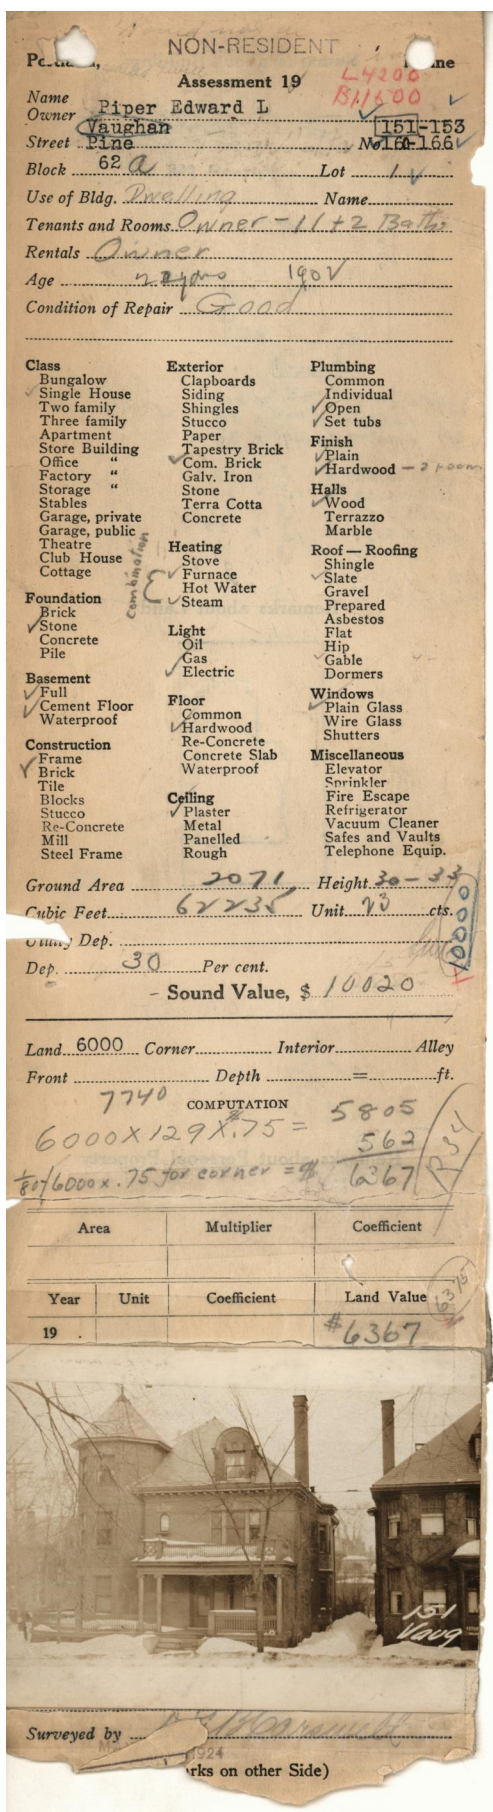 NON-RESIDENT
Assessment 19
L4200
B11600
Name
Owner Piper Edward L
Vaughan 151-153
Street Pine No 160-166
Block 62 a Lot 1
Use of Bldg. Dwelling Name
Tenants and Rooms Owner - 11 + 2 Baths
Rentals Owner
Age 22 yrs 1902
Condition of Repair Good
Class
Bungalow
Single House
Two family
Three family
Apartment
Store Building
Office "
Factory "
Storage "
Stables
Garage, private
Garage, public
Theatre
Club House
Cottage
Foundation
Brick
Stone
Concrete
Pile
Basement
Full
Cement Floor
Waterproof
Construction
Frame
Brick
Tile
Blocks
Stucco
Re-Concrete
Mill
Steel Frame
Exterior
Clapboards
Siding
Shingles
Stucco
Paper
Tapestry Brick
Com. Brick
Galv. Iron
Stone
Terra Cotta
Concrete
Heating
Stove
Furnace
Hot Water
Steam
Combination
Light
Oil
Gas
Electric
Floor
Common
Hardwood
Re-Concrete
Concrete Slab
Waterproof
Ceiling
Plaster
Metal
Panelled
Rough
Plumbing
Common
Individual
Open
Set tubs
Finish
Plain
Hardwood - 2 rooms
Halls
Wood
Terrazzo
Marble
Roof — Roofing
Shingle
Slate
Gravel
Prepared
Asbestos
Flat
Hip
Gable
Dormers
Windows
Plain Glass
Wire Glass
Shutters
Miscellaneous
Elevator
Sprinkler
Fire Escape
Refrigerator
Vacuum Cleaner
Safes and Vaults
Telephone Equip.
Ground Area 2071 Height 30-33
Cubic Feet 62235 Unit 23 cts.
Utility Dep.
10000
Dep. 30 Per cent.
- Sound Value, $ 10020
Land 6000 Corner Interior Alley
Front Depth = ft.
7740 COMPUTATION
6000 X 129 X $.75 = 5805
562
1/8 of 6000 x .75 for corner = $ 6367
Area Multiplier Coefficient
Year Unit Coefficient Land Value
6375
19 $6367
151
Vaug
Surveyed by
1924
rks on other Side)